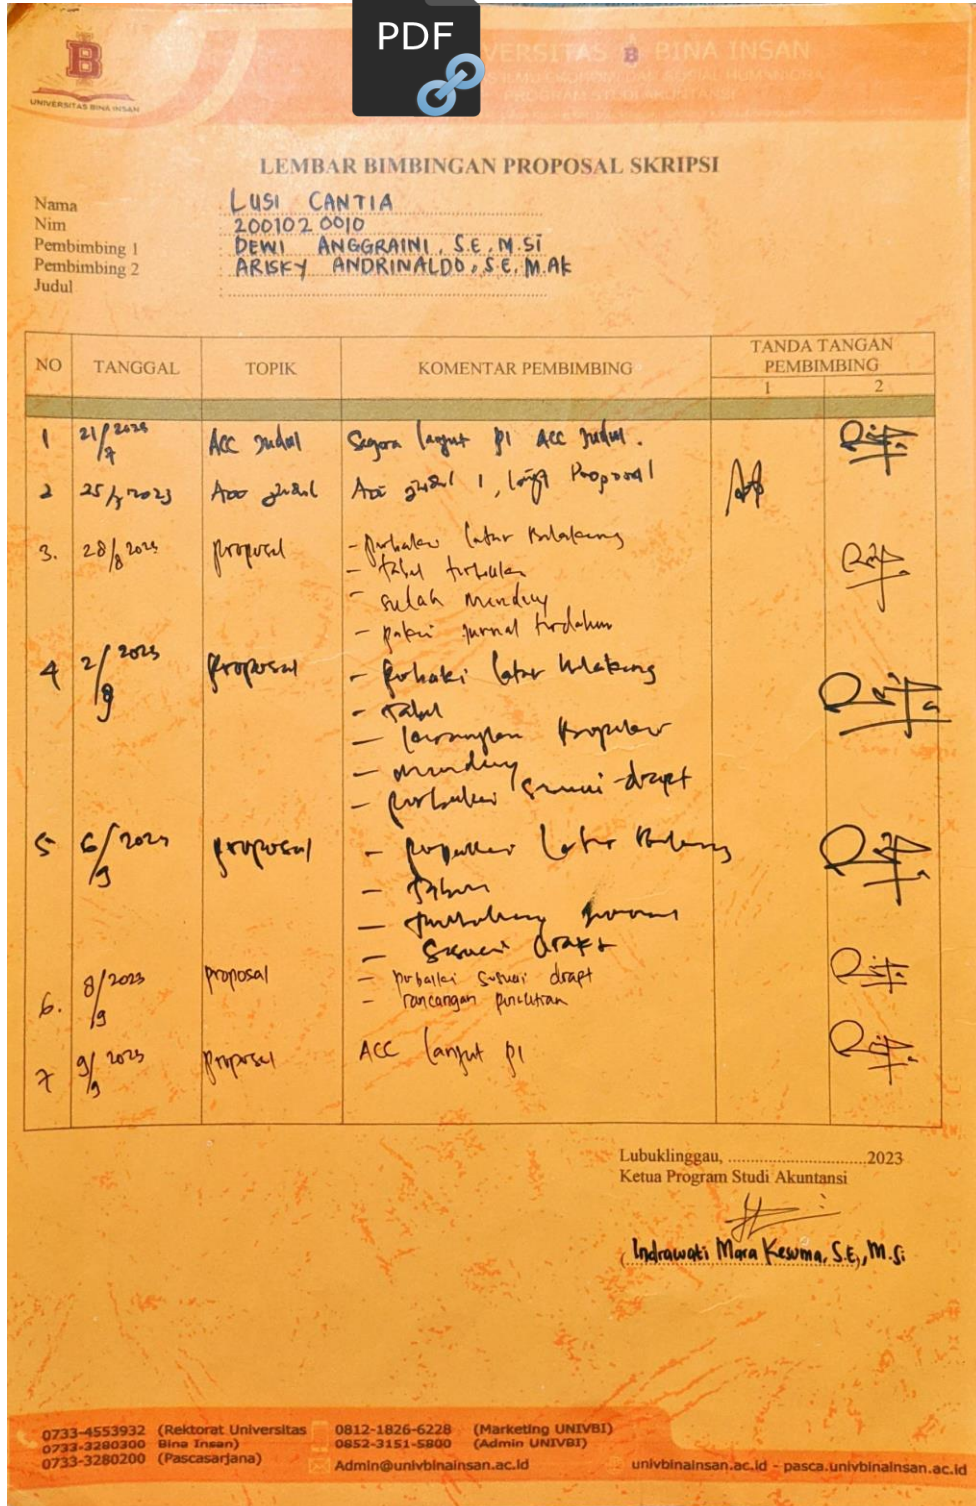 PDF
UNIVERSITAS BINA INSAN
VERSITAS BINA INSAN
LEMBAR BIMBINGAN PROPOSAL SKRIPSI
Nama LUSI CANTIA
Nim 2001020010
Pembimbing 1 : DEWI ANGGRAINI, S.E, M.Si
Pembimbing 2 : ARISKY ANDRINALDO, S.E, M.Ak
Judul :
NO TANGGAL TOPIK KOMENTAR PEMBIMBING TANDA TANGAN PEMBIMBING
1 2
1 21/7 2023 ACC Judul Segera lanjut p1 ACC Judul.
2 25/ 2023 Acc Judul Acc Judul 1, lanjut Proposal
3. 28/8 2023 proposal - perbaiki latar belakang
- tabel
- sudah
- jurnal terdahulu
4 2/9 2023 proposal - perbaiki latar belakang
- tabel
-
-
- perbaiki sesuai drapt
5 6/9 2023 proposal - latar belakang
-
-
- sesuai drapt
6. 8/9 2023 proposal - perbaiki sesuai drapt
- rancangan penelitian
7 9/9 2023 proposal ACC lanjut p1
Lubuklinggau, ..............................2023
Ketua Program Studi Akuntansi
(Indrawati Mara Kesuma, S.E), M.Si
0733-4553932 (Rektorat Universitas
0733-3280300 Bina Insan)
0733-3280200 (Pascasarjana)
0812-1826-6228 (Marketing UNIVBI)
0852-3151-5800 (Admin UNIVBI)
Admin@univbinainsan.ac.id
univbinainsan.ac.id - pasca.univbinainsan.ac.id